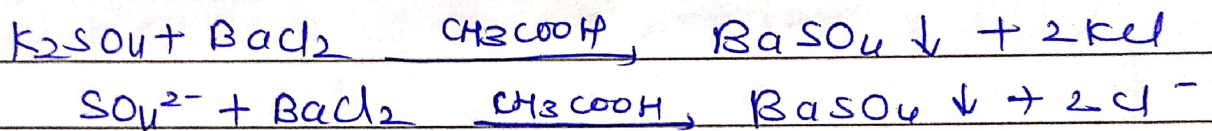 K2SO4 + BaCl2 CH3COOH→ BaSO4 ↓ + 2KCl
SO4²⁻ + BaCl2 CH3COOH→ BaSO4 ↓ + 2Cl⁻